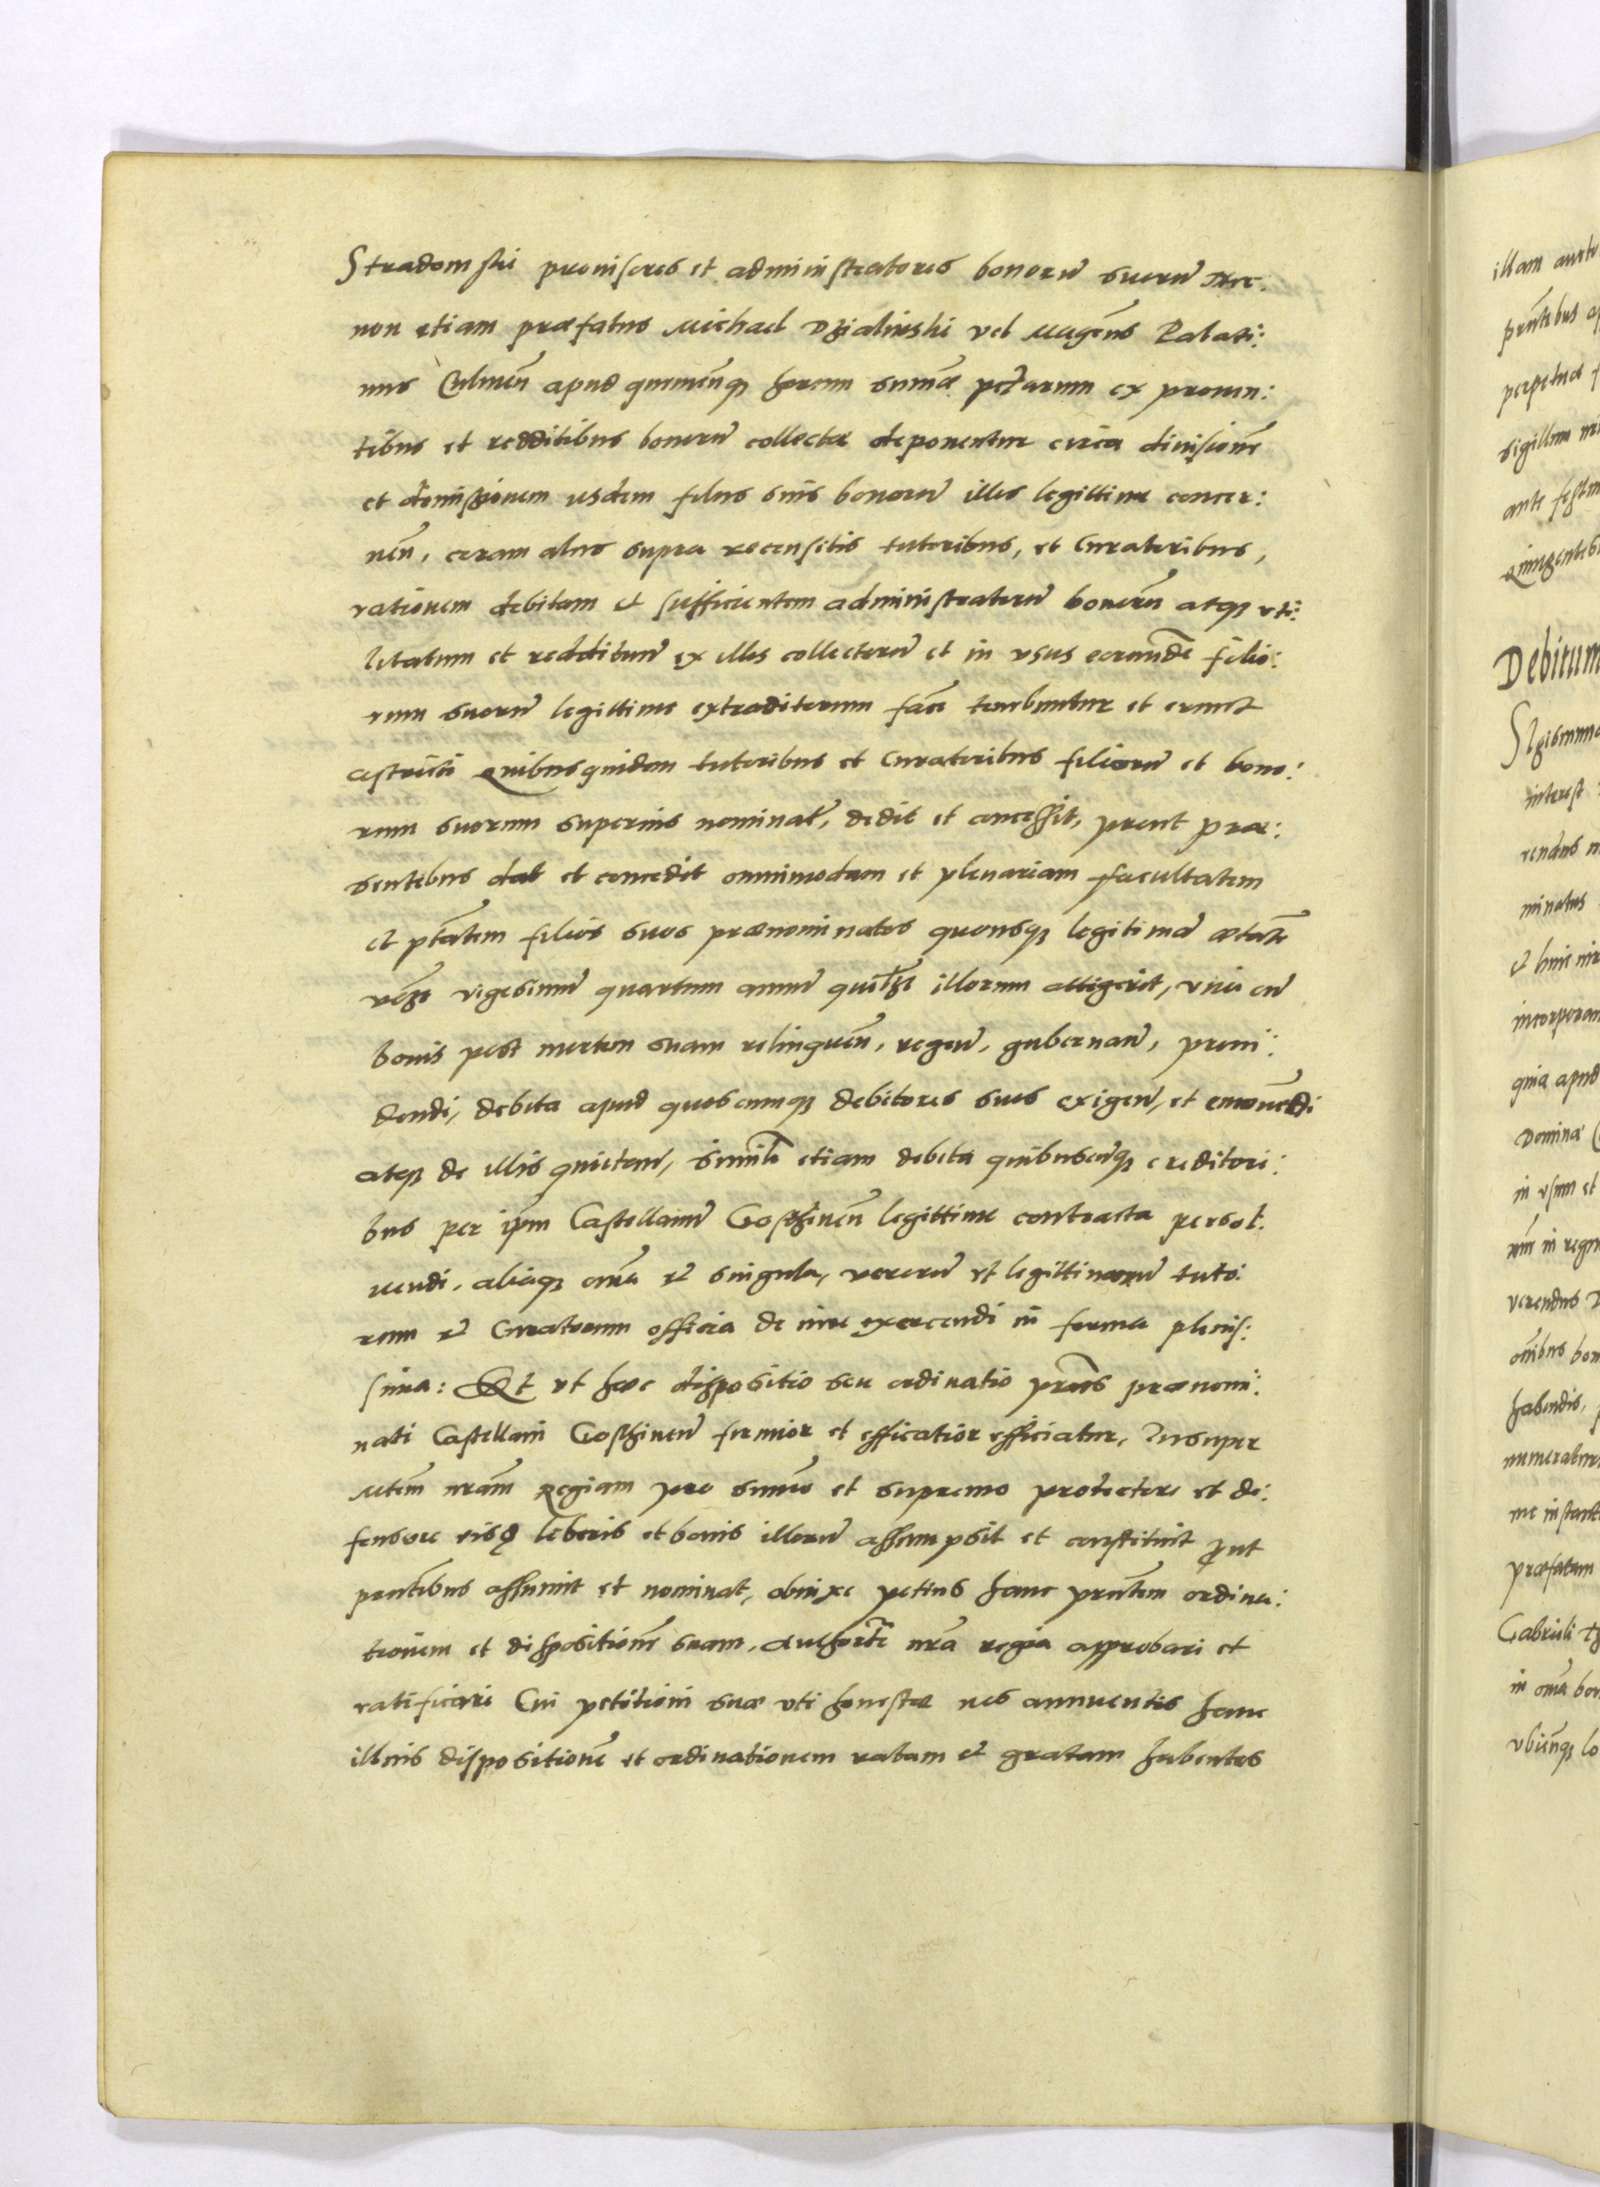 Stradomski prouisores et administratores bonorũ suorũ nec:
non etiam præfatus Michael Dzialinski vel Mag̃cus Palati:
nus Culmeñ apud quemcũqʒ horum summæ pec̃iarum ex prouen:
tibus et redditibus bonorũ collectæ deponentur circa diuisionẽ
et dimissionem iisdem filiis suis bonorũ illos legittime concer:
neñ, coram aliis supra recensitis tutoribus, et Curatoribus,
rationem debitam et sufficientem administratorũ bonorũ atqʒ vti:
litatum et reddituum ex illis collectorũ et in vsus eorundẽ filio:
rum suorũ legittime extraditorum facẽ tenebuntur et erunt
astricti Quibusquidem tutoribus et Curatoribus filiorũ et bono:
rum suorum superius nominatĩs, dedit et concessit, prout præ:
sentibus dat et concedit omnimodam et plenariam facultatem
et ptãtem filios suos prænominatos quousqʒ legitimã ætatẽ
vĩdʒt vigesimũ quartum annũ quilibʒt illorum attigerit, vnà cũ
bonis post mortem suam relinqueñ, regeñ, gubernañ, proui:
dendi, debita apud quoscumqʒ debitores suos exigeñ, et emonẽdi
atqʒ de illis quietañ, similĩr etiam debita quibuscũqʒ creditori:
bus per ip̃m Castellanũ Gostʒineñ legittime contracta persol:
uendi, aliaqʒ om̃ia et singula, verorũ et legittimorũ tuto:
rum et Curatorum officia de iure exercendi in forma plenis:
sima: Et vt hæc dispositio seu ordinatio p̃ntis prænomi:
nati Castellani Gostʒineñ firmior et efficatior efficiatur, Insuper
Mtem nrãm Regiam pro summo et supremo protectore et de:
fensore eisqʒ liberis et bonis illorũ assumpsit et constituit ꝓut
pñtibus assumit et nominat, obnixe petens hanc pñtem ordina:
tionem et dispositionẽ suam, authorĩte nrã regia approbari et
ratificari Cui petitioni suæ vti honestæ nos annuentes hanc
illius dispositionẽ et ordinationem ratam et gratam habentes
illam
perpetuæ
ante
Debitum
interest
minatus
quia apud
Dominæ
in vsum et
habendis,
præfatum
in om̃ia